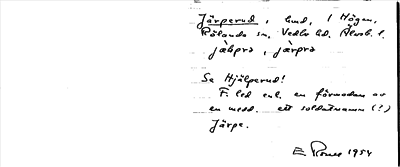 Järperud, lund, i Högen,
Rölanda sn, Vedbo hd. Älvsb. l.
jä̀bprɔ, jä̀rprɔ
Se Hjälperud!
F. led enl. en förmodan av
en medd. ett soldatnamn (?)
Järpe.
E 1954